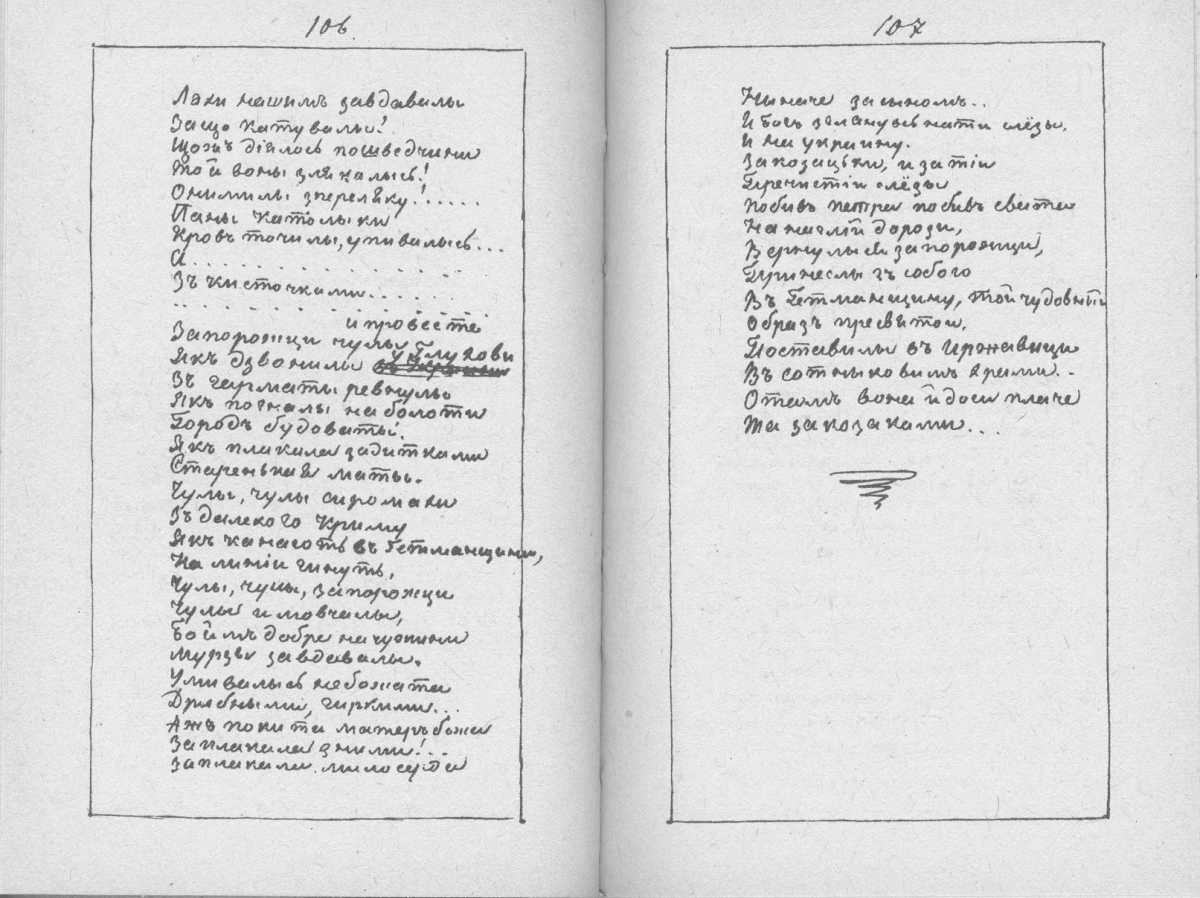 106
Ляхи нашимъ завдавалы
Защо катувалы!
Щожъ діялось по шведчини
То й воны злякалысь!
Онимилы зпереляку!......
Паны католыки
Кровъ точилы, упивалысь...
А
Зъ китсточками.......
и провесте
Запорожци чулы
Якъ дзвонилы у Глухови
Зъ гарматы ревнулы
Якъ погналы на болоти
Городъ будоваты.
Якъ плакала за дитками
Старенькая маты.
Чулы, чулы сиромахи
Зъ далекого Криму
Якъ конають въ Гетманщини,
На линіи гинуть,
Чулы, чулы, запорожци
Чулы и мовчалы,
Бо й имъ добре на чужини
Мурзы завдавалы.
Умивалысь небожата
Дрибными, гиркими...
Ажъ поки та матеръ божа
Заплакала з ними!..
Заплакала милосерда
107
Ныначе за сыномъ..
И Богъ зглянувсь на ти слёзы,
И на украину.
За козацьки, и за тіи
Пречистіи слёзы
Побивъ петра побивъ свята
На наглій дорози,
Вернулыся запорожци,
Прынеслы зъ собою
Въ Гетманщину, той чудовный
Образъ пресвятои,
Поставилы въ Иржавци
Въ сотныковимъ храми..
Отамъ вона й доси плаче
Та за козаками...